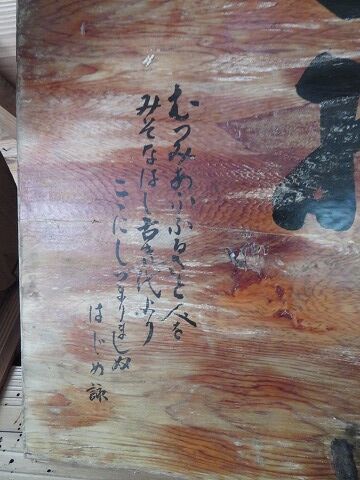 むつみあふふるさと人を
みそなはし古き代より
ここにしづまりましぬ
はじめ 詠